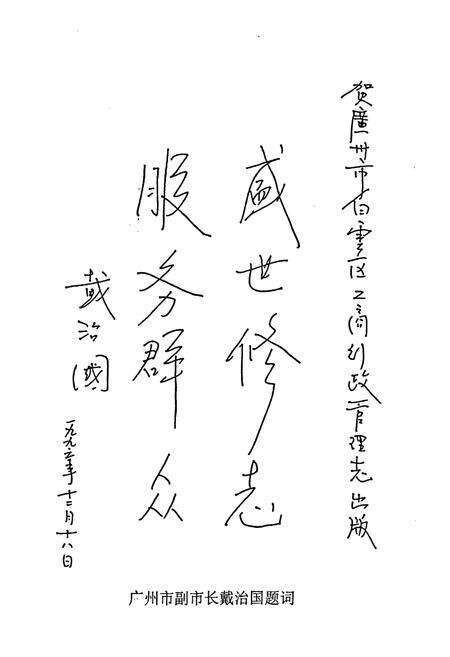 贺廣州市白雲区工商行政管理志出版
盛世修志
服务群众
戴治國
一九九六年十二月十八日
广州市副市长戴治国题词